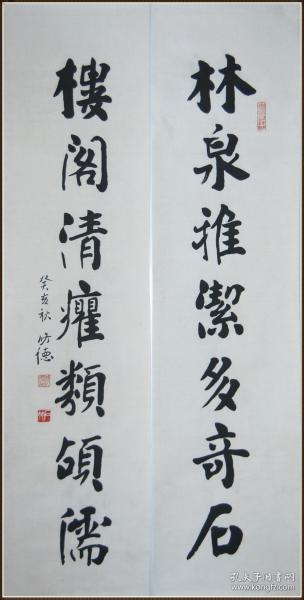 林泉雅潔多奇石
樓閣清癯類碩儒
癸亥秋 德
孔夫子旧书网